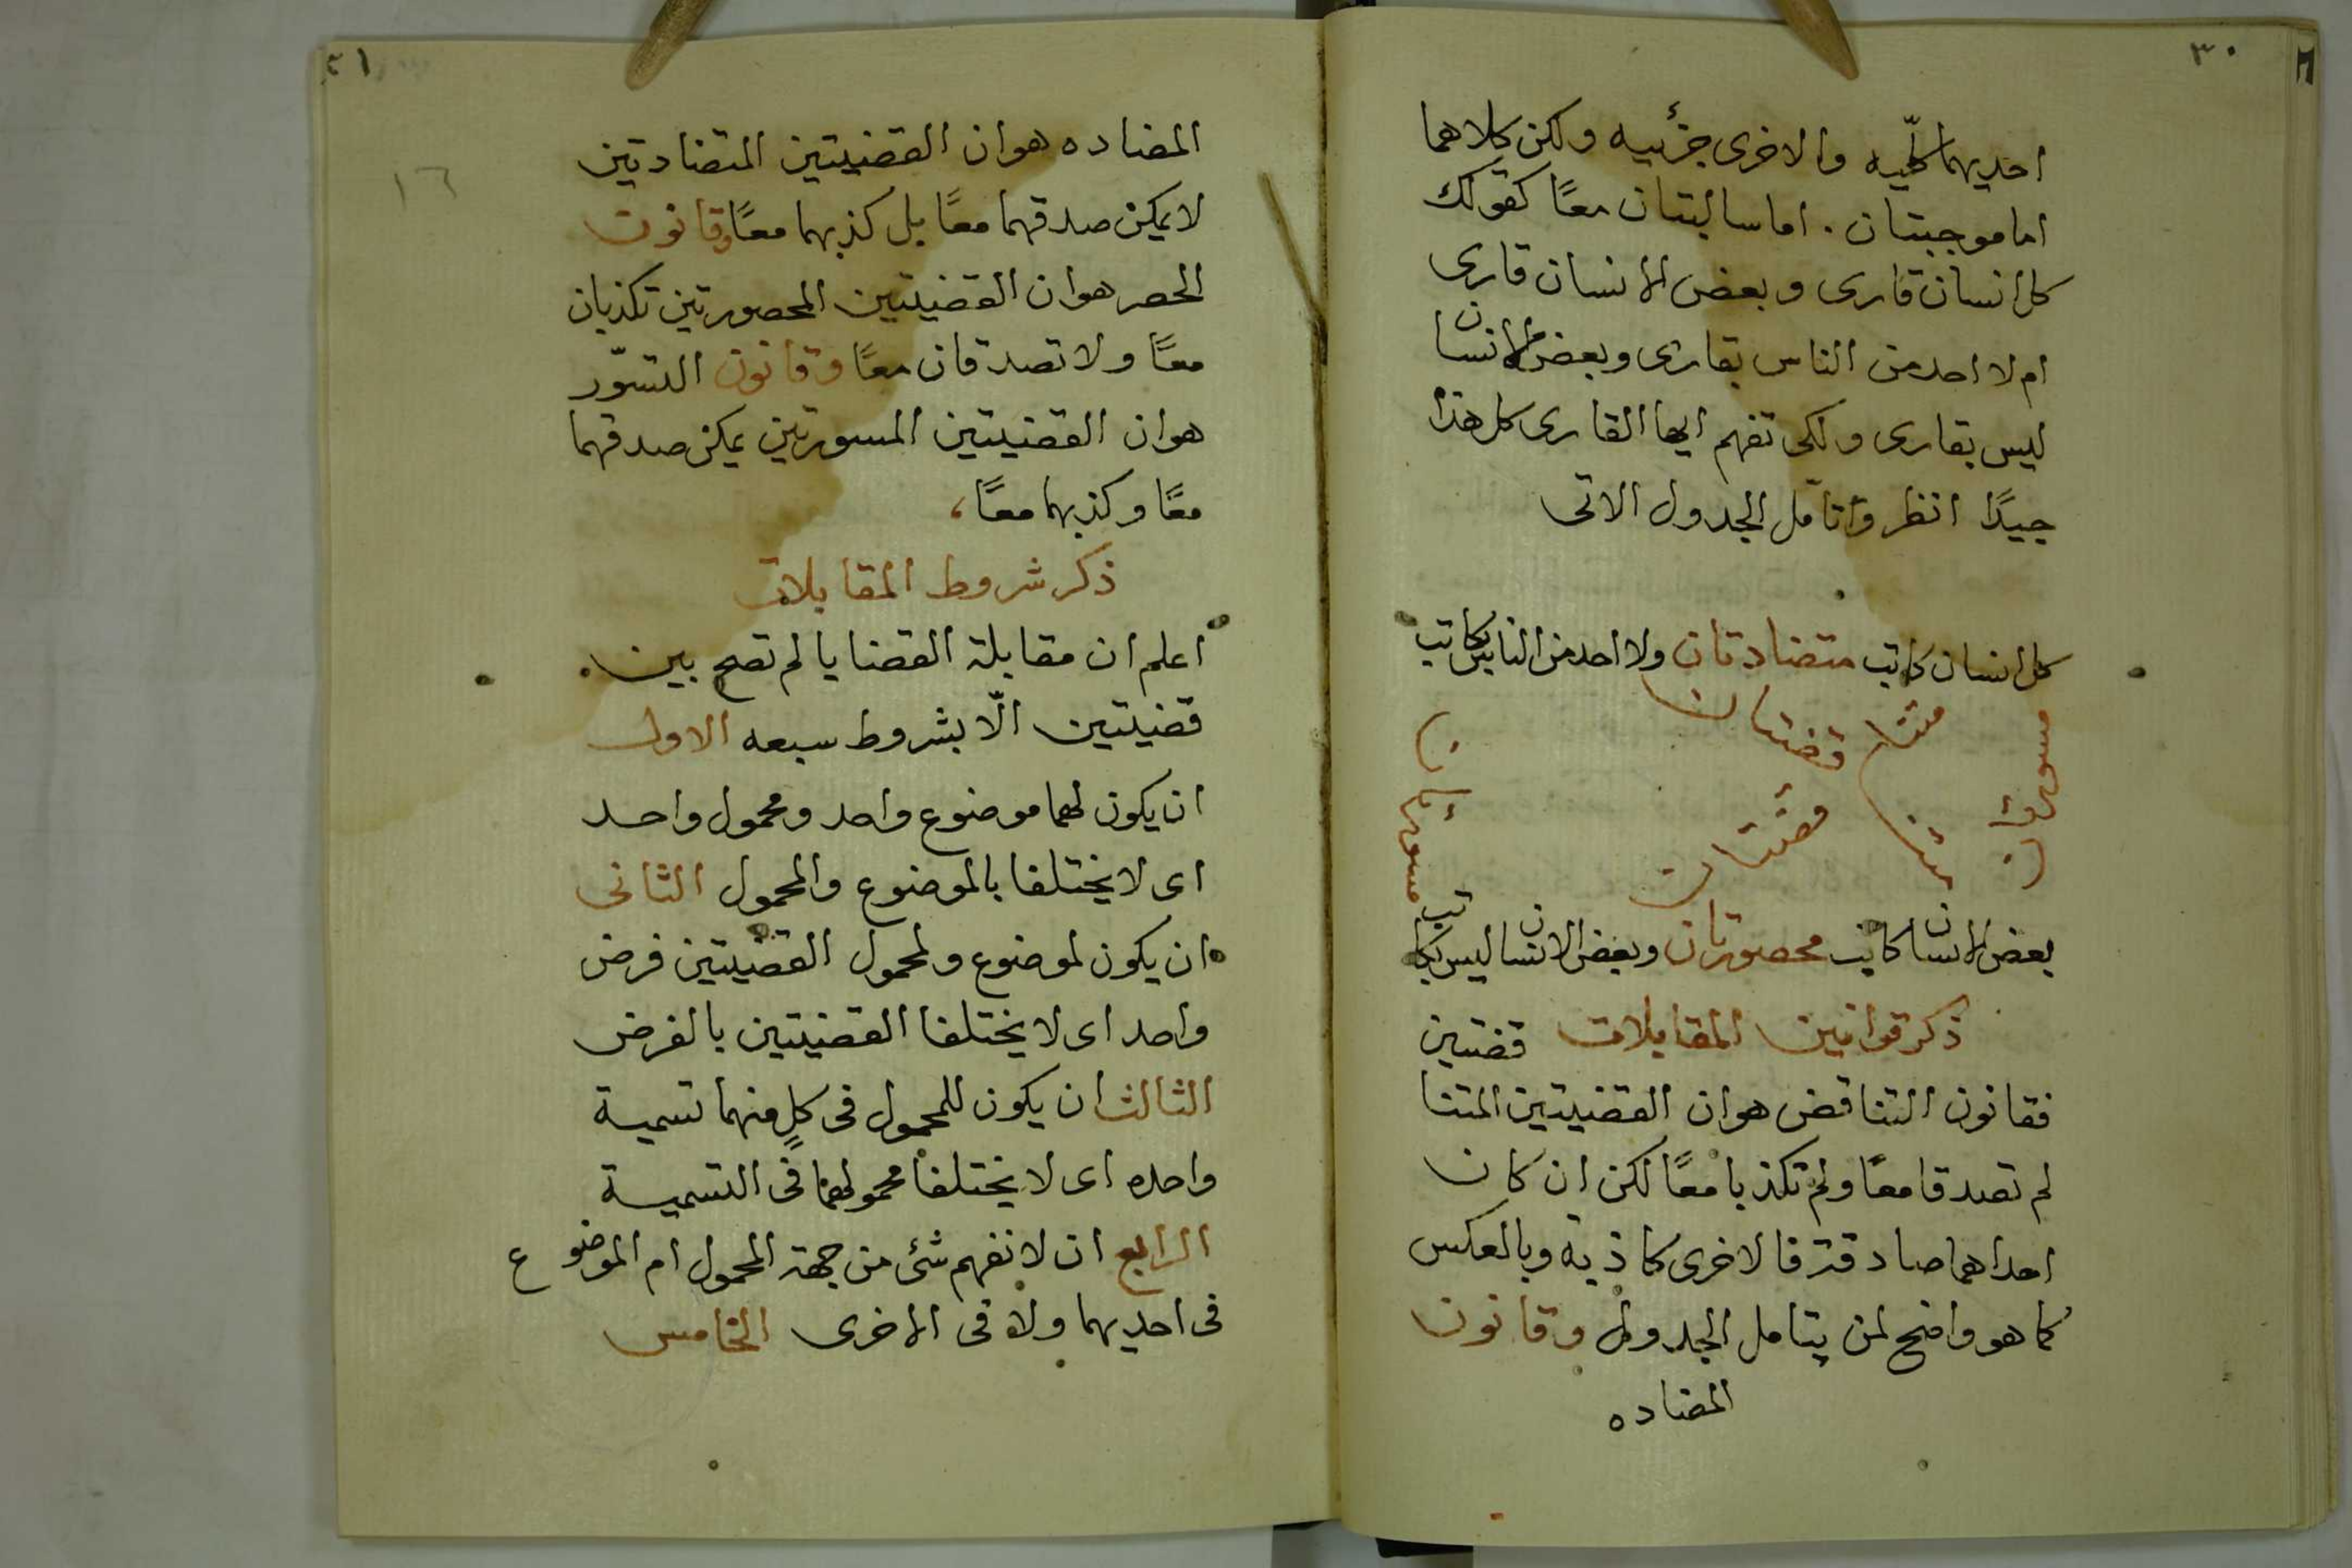 ٣٠
احديهما كلّيه والاخرى جزئيه ولكن كلاهما
اما موجبتان . اما سالبتان معًا كقولك
كل انسان قارى وبعض الانسان قارى
ام لا احد من الناس بقارى وبعض الانسان
ليس بقارى ولكى تفهم ايها القارى كل هذا
جيدًا انظر وتأمل الجدول الاتى
كل انسان كاتب متضادتان ولا احد من الناس بكاتب
متنا قضتان
متنا قضتان
بعض الانسان كاتب محصورتان وبعض الانسان ليس بكاتب
ذكر قوانين المقابلات
فقانون التناقض هو ان القضيتين المتنا قضتين
لم تصدقا معًا ولم تكذبا معًا لكن ان كان
احداهما صادقة فالاخرى كاذبه وبالعكس
كما هو واضح لمن يتامل الجدول وقانون
المضاده
١٦
المضاده هو ان القضيتين المتضادتين
لا يمكن صدقهما معًا بل كذبهما معًا وقانون
الحصر هو ان القضيتين المحصورتين تكذبان
معًا ولا تصدقان معًا وقانون التسوّر
هو ان القضيتين المسورتين يمكن صدقهما
معًا وكذبهما معًا،
ذكر شروط المقابلات
اعلم ان مقابلة القضايا لم تصح بين
قضيتين الّا بشروط سبعه الاول
ان يكون لهما موضوع واحد ومحمول واحد
اى لا يختلفا بالموضوع والمحمول الثانى
ان يكون لموضوع ولمحمول القضيتين فرض
واحد اى لا يختلفا القضيتين بالفرض
الثالث ان يكون للمحمول فى كلٍ منهما تسمية
واحده اى لا يختلفا محمولهما فى التسمية
الرابع ان لا نفهم شئ من جهة المحمول ام الموضوع
فى احديهما ولا فى الاخرى الخامس